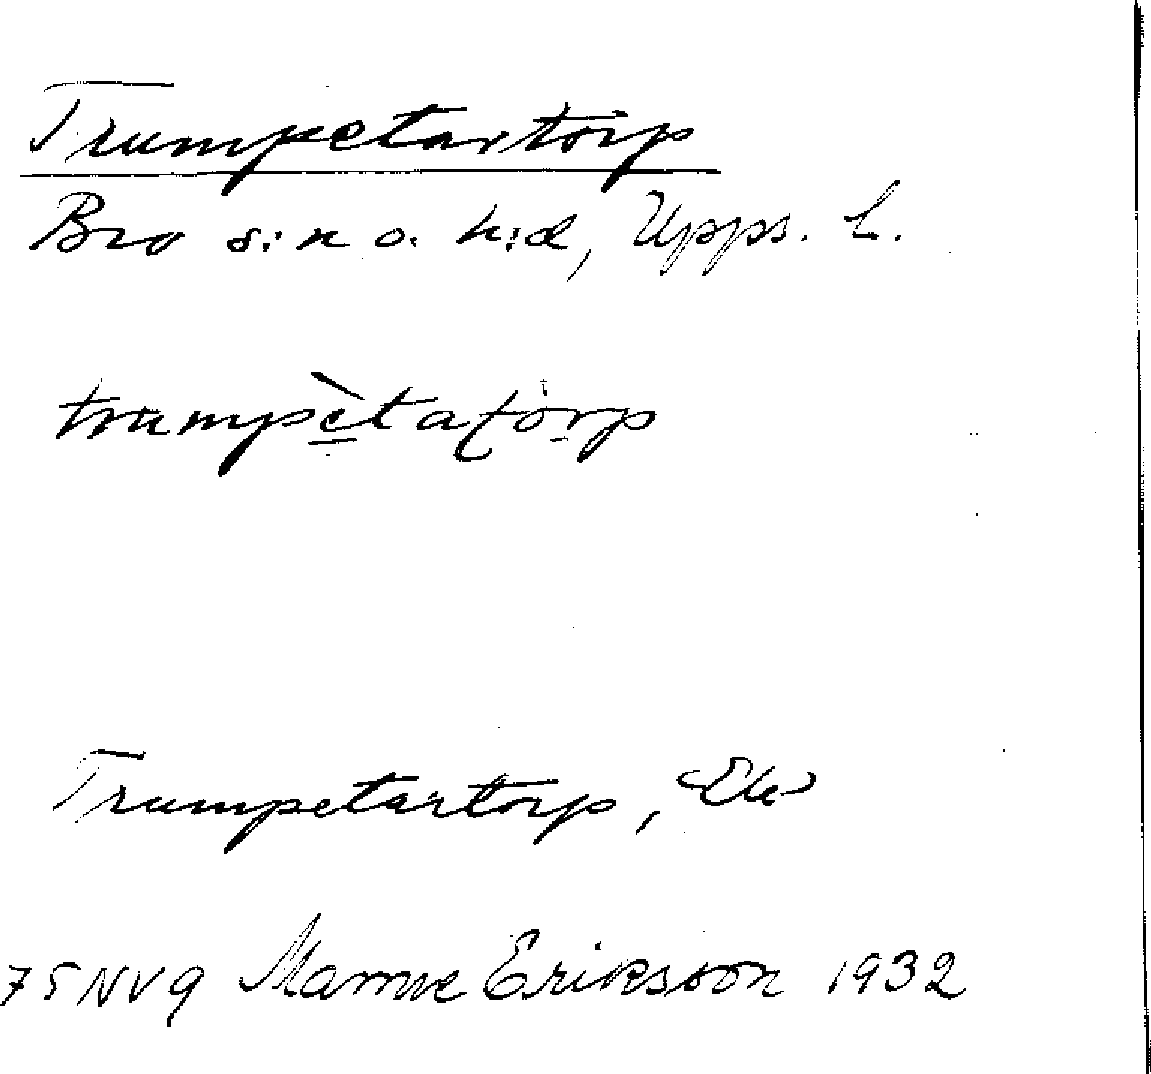 Trumpetartorp
Bro s:n o. h:d, Upps. l.
trumpètatȯrp
Trumpetartorp,
75NV9 Manne Eriksson 1932